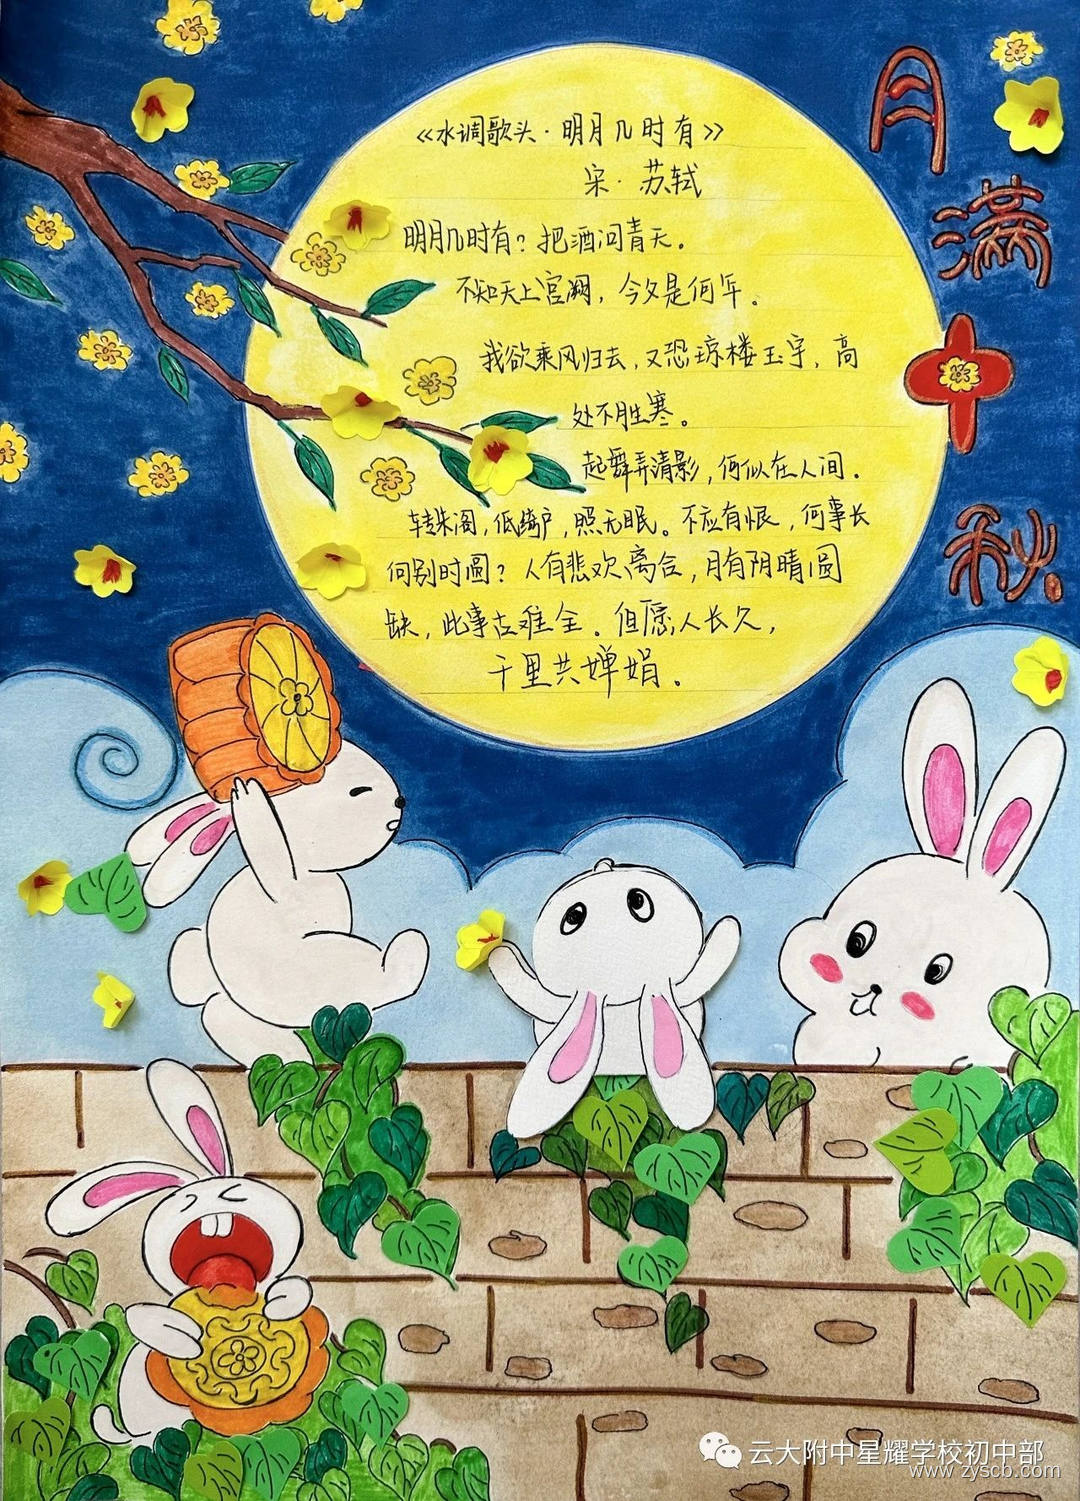 《水调歌头·明月几时有》
宋·苏轼
明月几时有？把酒问青天。
不知天上宫阙，今夕是何年。
我欲乘风归去，又恐琼楼玉宇，高
处不胜寒。
起舞弄清影，何似在人间。
转朱阁，低绮户，照无眠。不应有恨，何事长
向别时圆？人有悲欢离合，月有阴晴圆
缺，此事古难全。但愿人长久，
千里共婵娟。
月满中秋
云大附中星耀学校初中部
www.zyscb.com